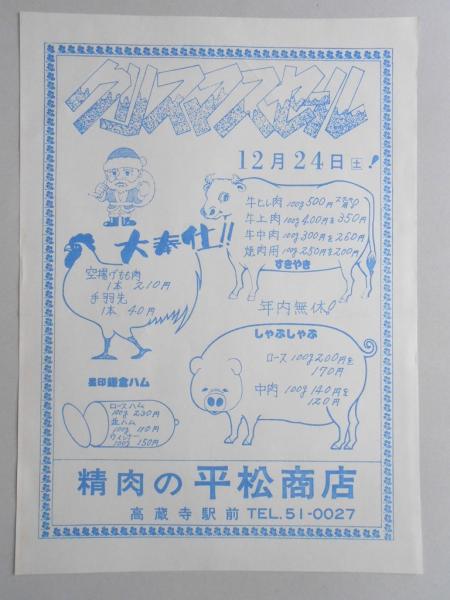 クリスマスセール
12月24日(土)!
大奉仕!!
牛ヒレ肉 100g 500円
牛上肉 100g 400円を350円
牛中肉 100g 300円を260円
焼肉用 100g 250円を200円
すきやき
空揚げもも肉
1本 210円
手羽先
1本 40円
年内無休!
しゃぶしゃぶ
ロース 100g 200円を
170円
中肉 100g 140円を
120円
星印鎌倉ハム
ロースハム
100g 230円
並ハム
100g 110円
ウィンナー
100g 150円
精肉の 平松商店
高蔵寺駅前 TEL.51-0027